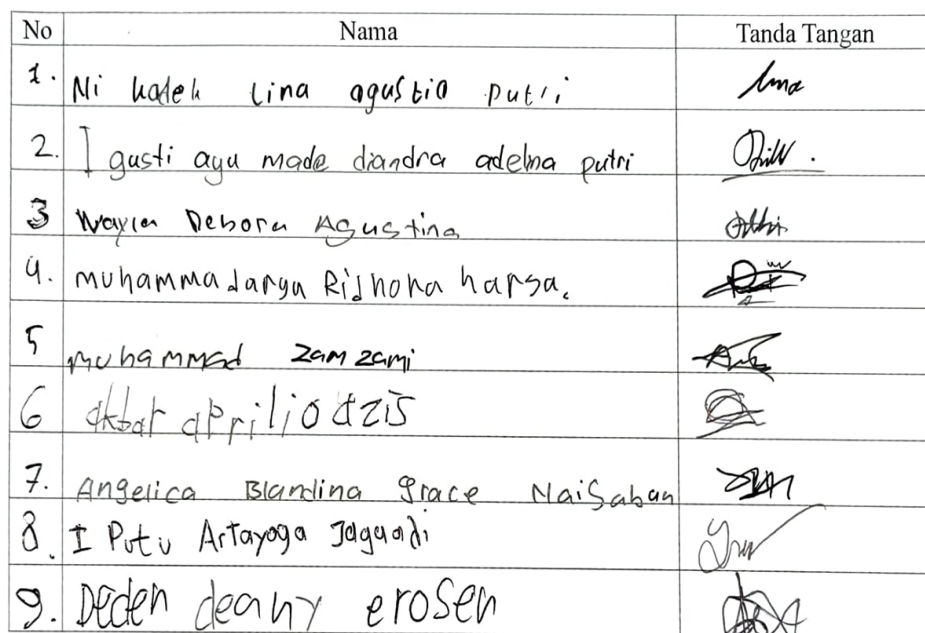 No Nama Tanda Tangan
1. Ni kadek Lina agustia putri
2. I gusti ayu made diandra adelma putri
3 Wayan Debora Agustina
4. muhammad arya Ridhoka harsa.
5 muhammad zam zami
6 akbar aprilio azis
7. Angelica Blandina grace Naisaban
8. I Putu Artayoga Jagaadi
9. Deden deany erosen